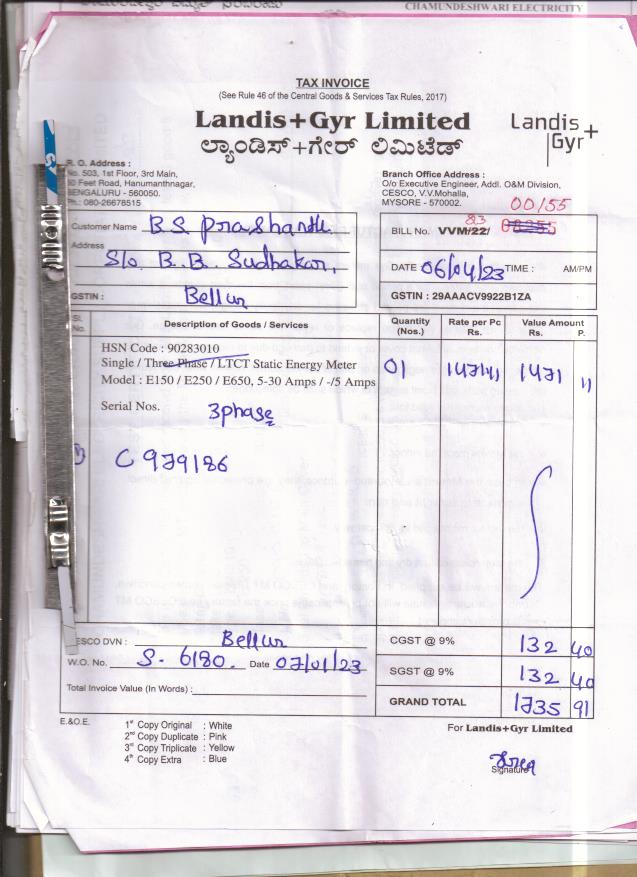 CHAMUNDESHWARI ELECTRICITY
TAX INVOICE
(See Rule 46 of the Central Goods & Services Tax Rules, 2017)
Landis+Gyr Limited
Landis+
Gyr
ಲ್ಯಾಂಡಿಸ್+ಗೇರ್ ಲಿಮಿಟೆಡ್
R. O. Address :
No. 503, 1st Floor, 3rd Main,
Feet Road, Hanumanthnagar,
BENGALURU - 560050.
Ph.: 080-26678515
Branch Office Address :
O/o Executive Engineer, Addl. O&M Division,
CESCO, V.V.Mohalla,
MYSORE - 570002.
00/55
Customer Name B.S Prashanth
Address
S/o B.B. Sudhakar,
GSTIN : Bellur
23
BILL No. VVM/22/
DATE 06/04/23 TIME : AM/PM
GSTIN : 29AAACV9922B1ZA
Sl. No. Description of Goods / Services Quantity (Nos.) Rate per Pc Rs. Value Amount Rs. P.
HSN Code : 90283010
Single / Three Phase / LTCT Static Energy Meter
Model : E150 / E250 / E650, 5-30 Amps / -/5 Amps 01 1471/11 1471 11
Serial Nos. 3phase
C979186
CESCO DVN : Bellur
W.O. No. S- 6180. Date 07/01/23
Total Invoice Value (In Words) :
CGST @ 9% 132 40
SGST @ 9% 132 40
GRAND TOTAL 1735 91
E.&O.E.
1st Copy Original : White
2nd Copy Duplicate : Pink
3rd Copy Triplicate : Yellow
4th Copy Extra : Blue
For Landis+Gyr Limited
Signature